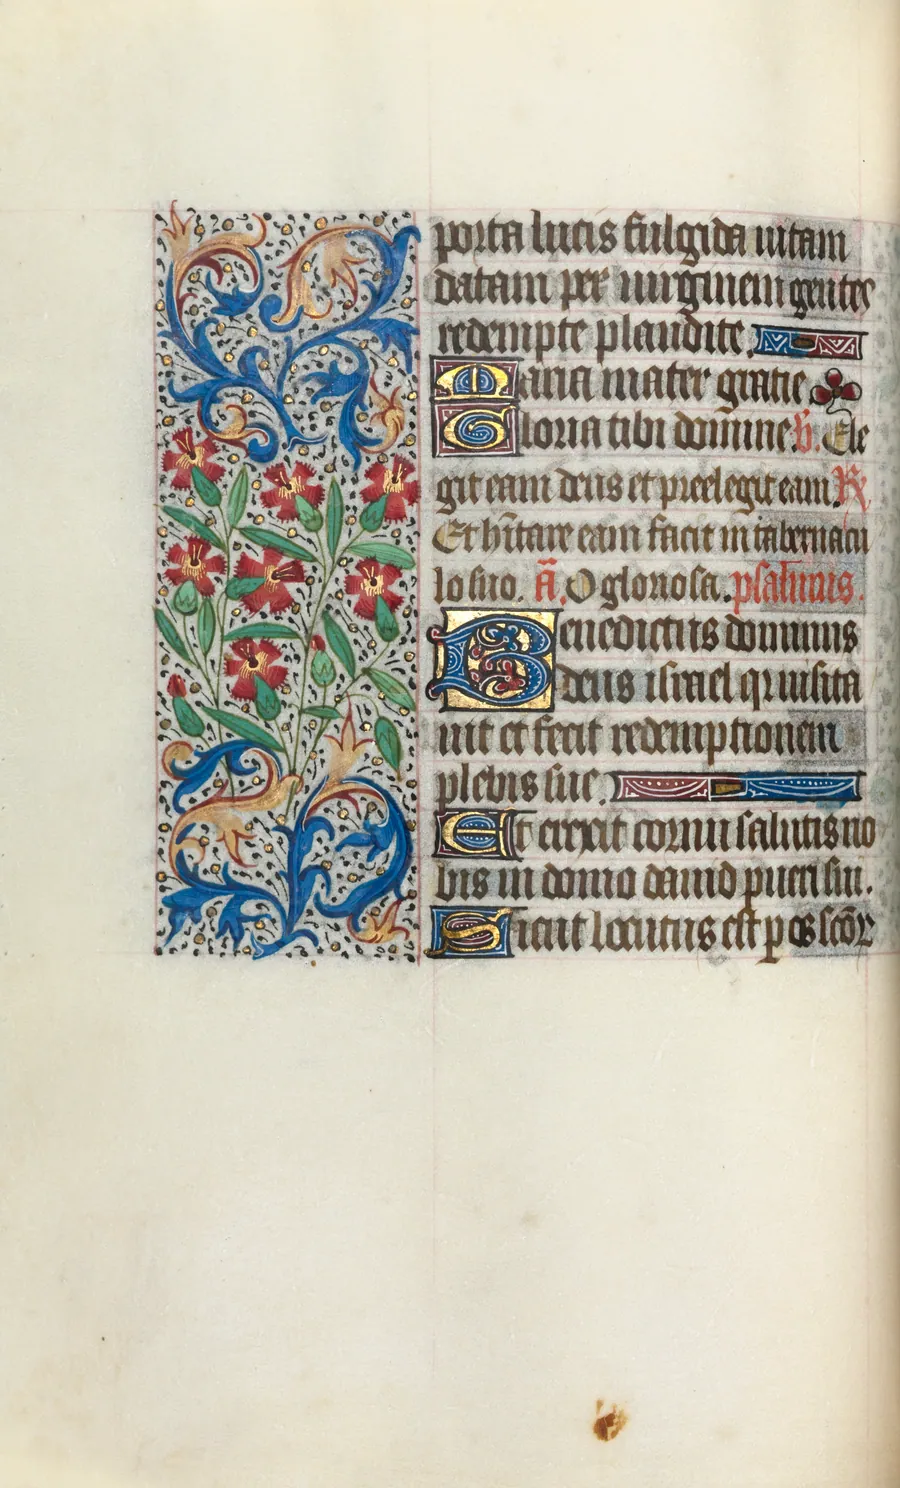 porta lucis fulgida uitam
datam per uirginem gentes
redempte plaudite.
Maria mater gratie
Gloria tibi domine. v̄. Ele
git eam deus et preelegit eam R̄
Et h̄itare eam facit in tabernacu
lo suo. ā. O gloriosa. psalmus.
Benedictus dominus
deus israel qr uisita
uit et fecit redemptionem
plebis sue.
Et erexit cornu salutis no
bis in domo dauid pueri sui.
Sicut locutus est p os scōr